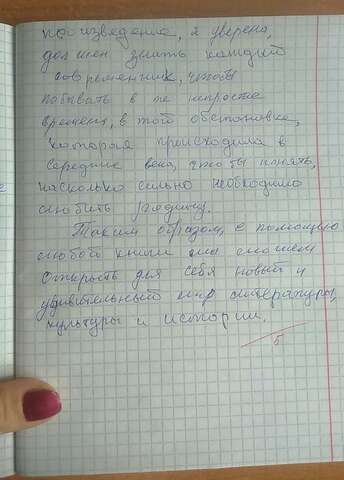 произведение, я уверена,
должен знать каждый
современник, чтобы
побывать в те непростые
времена, в той обстановке,
которая происходила в
середине века, чтобы понять,
насколько сильно необходимо
любить Родину.
Таким образом, с помощью
любой книги мы сможем
открыть для себя новый и
удивительный мир литературы,
культуры и истории.
5